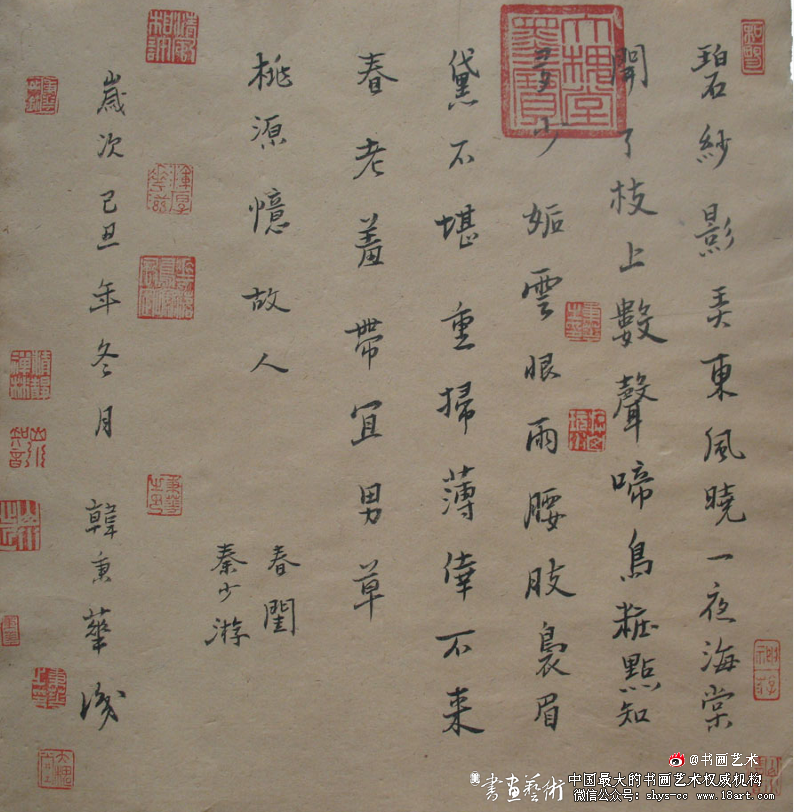 碧紗影弄東風曉一夜海棠
開了枝上數聲啼鳥粧點知
多少妬雲恨雨腰肢裊眉
黛不堪重掃薄倖不来
春老羞帶宜男草
桃源憶故人
春閨
秦少游
歲次己丑年冬月 韓秉華
@书画艺术
書畫藝術 中国最大的书画艺术权威机构
微信公众号：shys-cc www.18art.com